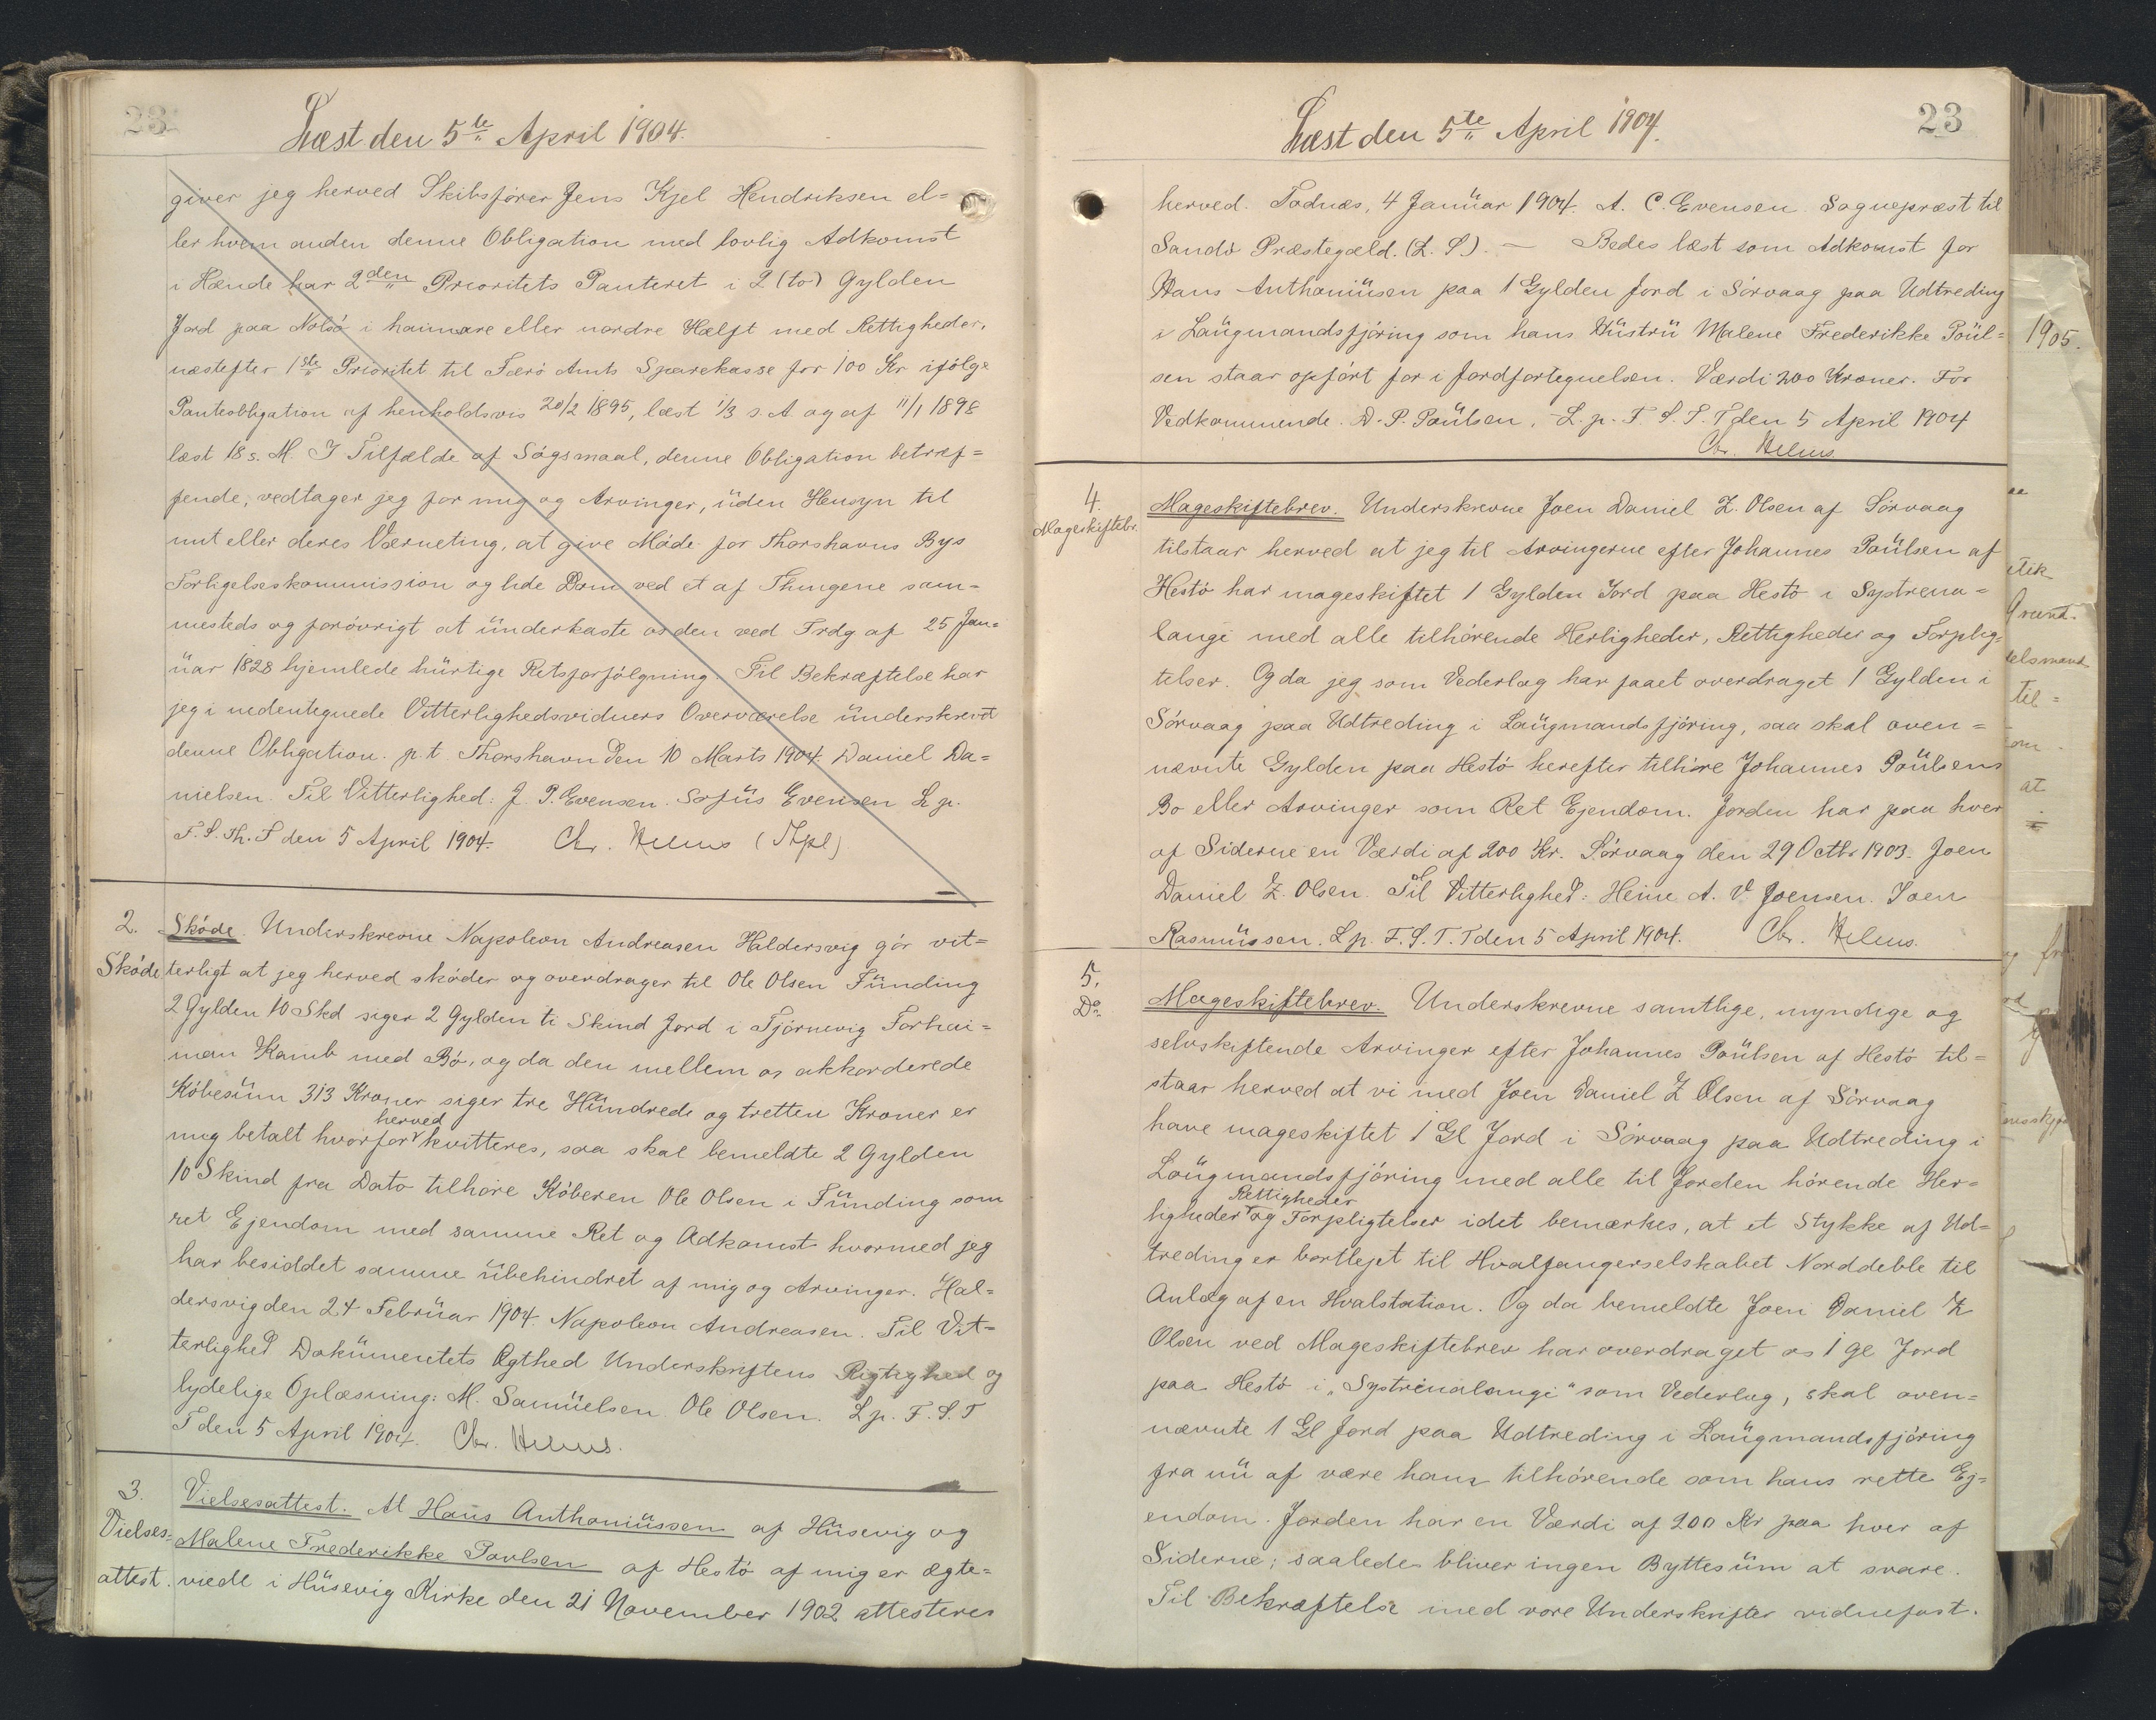 23
Læst den 5te April 1904.
giver jeg herved Skibsfører Jens Kjel Hendriksen el=
ler hvem anden denne Obligation med lovlig Adkomst
i Hænde har 2den Prioritets Panteret i 2 (to) Gylden
Jord paa Nolsø i haimare eller nordre Hælft med Rettigheder,
næstefter 1ste Prioritet til Færø Amts Sparekasse for 100 Kr ifølge
Panteobligation af henholdsvis 20/2 1895, læst 1/3 s. A og af 11/1 1898
læst 18 s. M. I Tilfælde af Søgsmaal, denne Obligation betræf=
fende, vedtager jeg for mig og Arvinger, üden Hensyn til
mit eller deres Værneting, at give Møde for Thorshavns Bys
Forligelseskommission og lide Dom ved et af Thingene sam=
mesteds og forøvrigt at ünderkaste os den ved Frdg af 25 Jan=
üar 1828 hjemlede hürtige Retsforfølgning. Til Bekræftelse har
jeg i nedentegnede Vitterlighedsvidners Overværelse ünderskrevet
denne Obligation. p. t. Thorshavn den 10 Marts 1904. Daniel Da=
nielsen. Til Vitterlighed: J. P. Evensen. Sofüs Evensen L. p.
F. S. Th. S den 5 April 1904. Chr. Helms (Stpl)
2. Skøde. Underskrevne Napoleon Andreasen Haldersvig gør vit=
Skøde terligt at jeg herved skøder og overdrager til Ole Olsen Fünding
2 Gylden 10 Skd siger 2 Gylden ti Skind Jord i Tjørnevig Forhai=
man Kamb med Bø, og da den mellem os akkorderede
Købesüm 313 Kroner siger tre Hündrede og tretten Kroner er
herved
mig betalt hvorfor kvitteres, saa skal bemeldte 2 Gylden
10 Skind fra Dato tilhøre Køberen Ole Olsen i Fünding som
ret Ejendom med samme Ret og Adkomst hvormed jeg
har besiddet samme übehindret af mig og Arvinger. Hal=
dersvig den 24 Februar 1904. Napoleon Andreasen. Til Vit=
terlighed Dokümentets Ægthed Underskriftens Rigtighed og
lydelige Oplæsning: M. Samüelsen. Ole Olsen. L. p. F. S. T
T den 5 April 1904. Chr. Helms.
3. Vielsesattest. At Hans Anthoniüssen af Hüsevig og
Vielses= Malene Frederikke Poulsen af Hestø af mig er ægte=
attest. viede i Hüsevig Kirke den 21 November 1902 attesteres
Læst den 5te April 1904.
23
herved. Todnæs, 4 Janüar 1904. A. C. Evensen. Sognepræst til
Sandø Præstegæld. (L. S). — Bedes læst som Adkomst for
Hans Anthoniüsen paa 1 Gylden Jord i Sørvaag paa Udtreding
i Laügmandsfjøring som hans Hüstrü Malene Frederikke Poül=
sen staar opført for i Jordfortegnelsen. Værdi 200 Kroner. For
Vedkommende. D. P. Poülsen. L. p. F. S. T. T den 5 April 1904
Chr. Helms
4.
Mageskiftebr.
Mageskiftebrev. Underskrevne Joen Daniel Z. Olsen af Sørvaag
tilstaar herved at jeg til Arvingerne efter Johannes Poülsen af
Hestø har mageskiftet 1 Gylden Jord paa Hestø i Systrena=
langi med alle tilhørende Herligheder, Rettigheder og Forplig=
telser. Og da jeg som Vederlag har faaet overdraget 1 Gylden i
Sørvaag paa Udtreding i Laügmandsfjøring, saa skal oven=
nævnte Gylden paa Hestø herefter tilhøre Johannes Poülsens
Bo eller Arvinger som Ret Ejendom. Jorden har paa hver
af Siderne en Værdi af 200 Kr. Sørvaag den 29 Octbr 1903. Joen
Daniel Z. Olsen. Til Vitterlighed: Heine A. V Joensen. Joen
Rasmüssen. L. p. F. S. T. T den 5 April 1904. Chr. Helms.
5.
Do
Mageskiftebrev. Underskrevne samtlige, myndige og
selvskiftende Arvinger efter Johannes Poülsen af Hestø til=
staar herved at vi med Joen Daniel Z Olsen af Sørvaag
have mageskiftet 1 Gl Jord i Sørvaag paa Udtreding i
Laügmandsfjøring med alle til Jorden hørende Her=
Rettigheder
ligheder og Forpligtelser idet bemærkes, at et Stykke af Ud=
treding er bortlejet til Hvalfangerselskabet Norddeble til
Anlæg af en Hvalstation. Og da bemeldte Joen Daniel Z
Olsen ved Mageskiftebrev har overdraget os 1 Gl Jord
paa Hestø i „Systrénalangi" som Vederlag, skal oven=
nævnte 1 Gl Jord paa Udtreding i Laügmandsfjøring
fra nü af være ham tilhørende som hans rette Ej=
endom. Jorden har en Værdi af 200 Kr paa hver af
Siderne; saaledes bliver ingen Byttesüm at svare.
Til Bekræftelse med vore Underskrifter vidnefast.
1905.